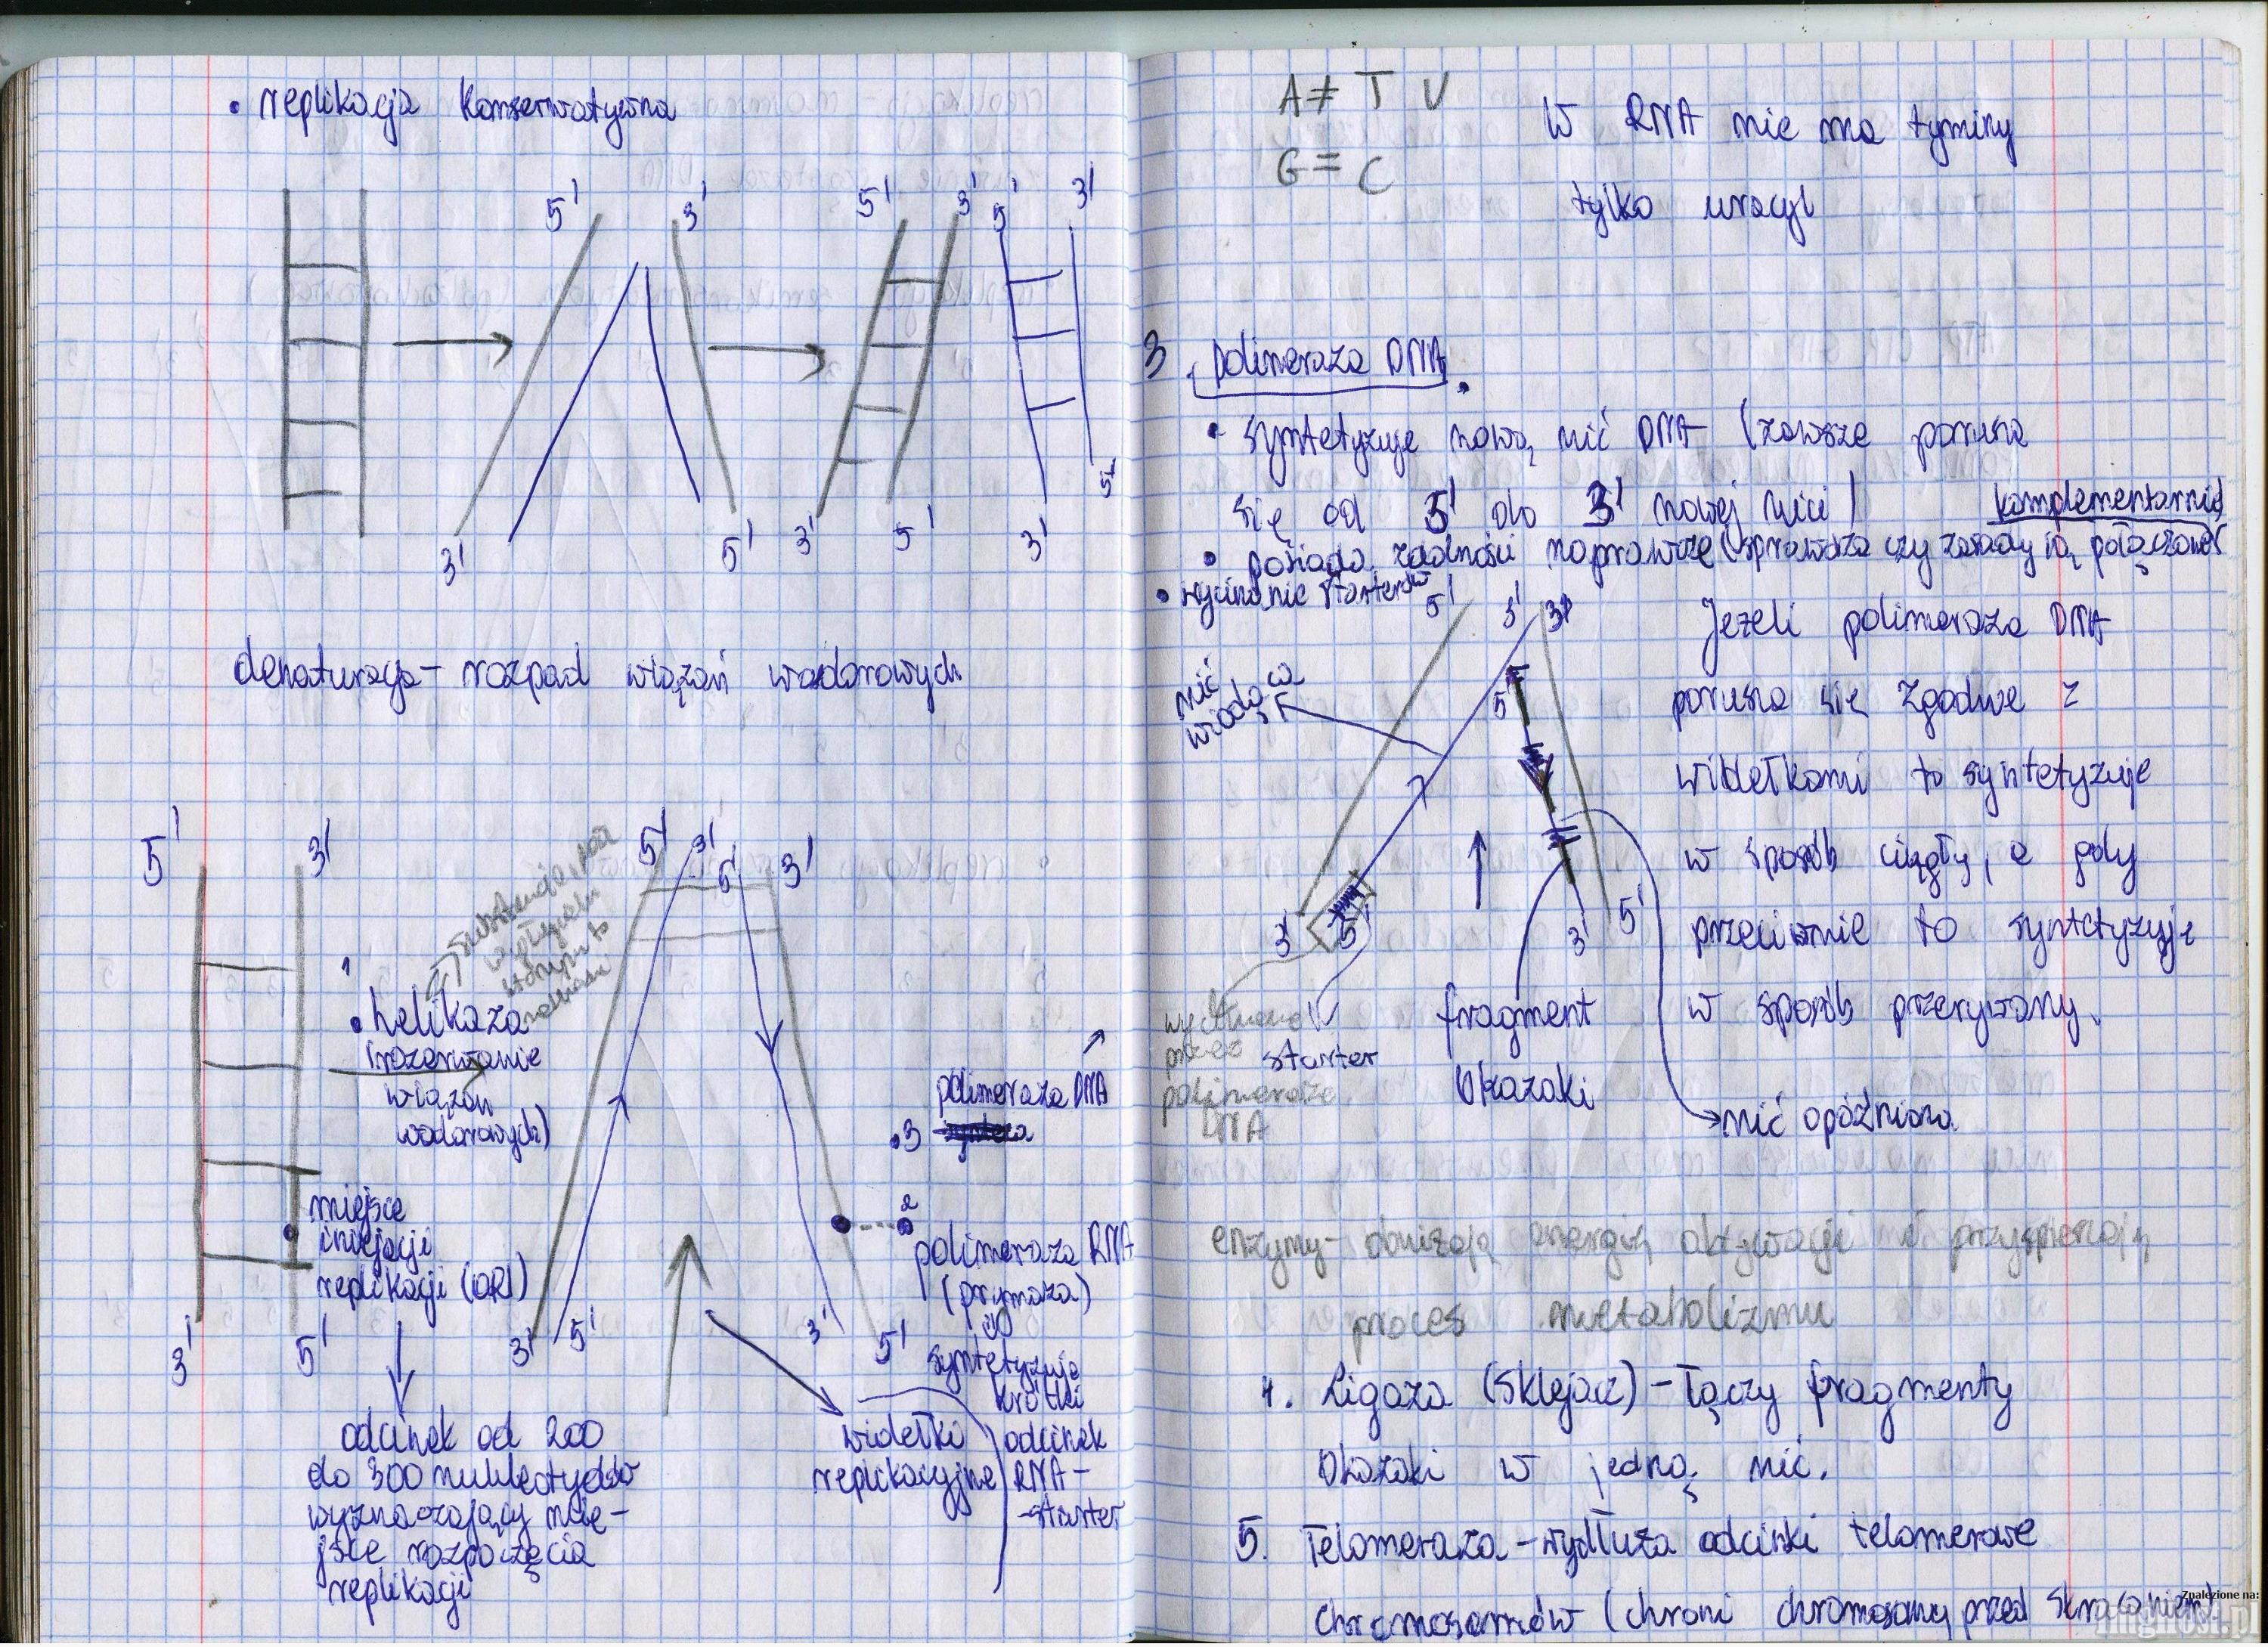 • replikacja konserwatywna
5' 3' 5' 3' 5' 3'
3' 5' 3' 5' 3' 5'
denaturacja – rozpad wiązań wodorowych
5' 3' 5' 3' 5' 3'
1
• helikaza
(rozerwanie
wiązań
wodorowych)
miejsce
inicjacji
replikacji (ORI)
3' 5' 3' 5' 3' 5'
odcinek od 200
do 300 nukleotydów
wyznaczający mie-
jsce rozpoczęcia
replikacji
polimeraza DNA
•3
2
polimeraza RNA
(prymaza)
syntetyzuje
krótki
odcinek
RNA –
-starter
widełki
replikacyjne
A ≠ T U
G ≡ C
W RNA nie ma tyminy
tylko uracyl
3. polimeraza DNA
• syntetyzuje nową nić DNA (zawsze porusza
się od 5' do 3' nowej nici)
komplementarnie)
• posiada zdolności naprawcze (sprawdza czy zasady są połączone
• wycinanie starterów
5' 3' 3'
nić
wiodąca
5'
3' 5' 3' 5'
wycinane
przez
polimerazę
DNA
starter
fragment
Okazaki
nić opóźniona
Jeżeli polimeraza DNA
porusza się zgodnie z
widełkami to syntetyzuje
w sposób ciągły, a gdy
przeciwnie to syntetyzuje
w sposób przerywany.
enzymy – obniżają energię aktywacji i przyspieszają
proces metabolizmu
4. Ligaza (sklejacz) – łączy fragmenty
Okazaki w jedną nić.
5. Telomeraza – wydłuża odcinki telomerowe
chromosomów (chroni chromosomy przed skracaniem)
Znalezione na: